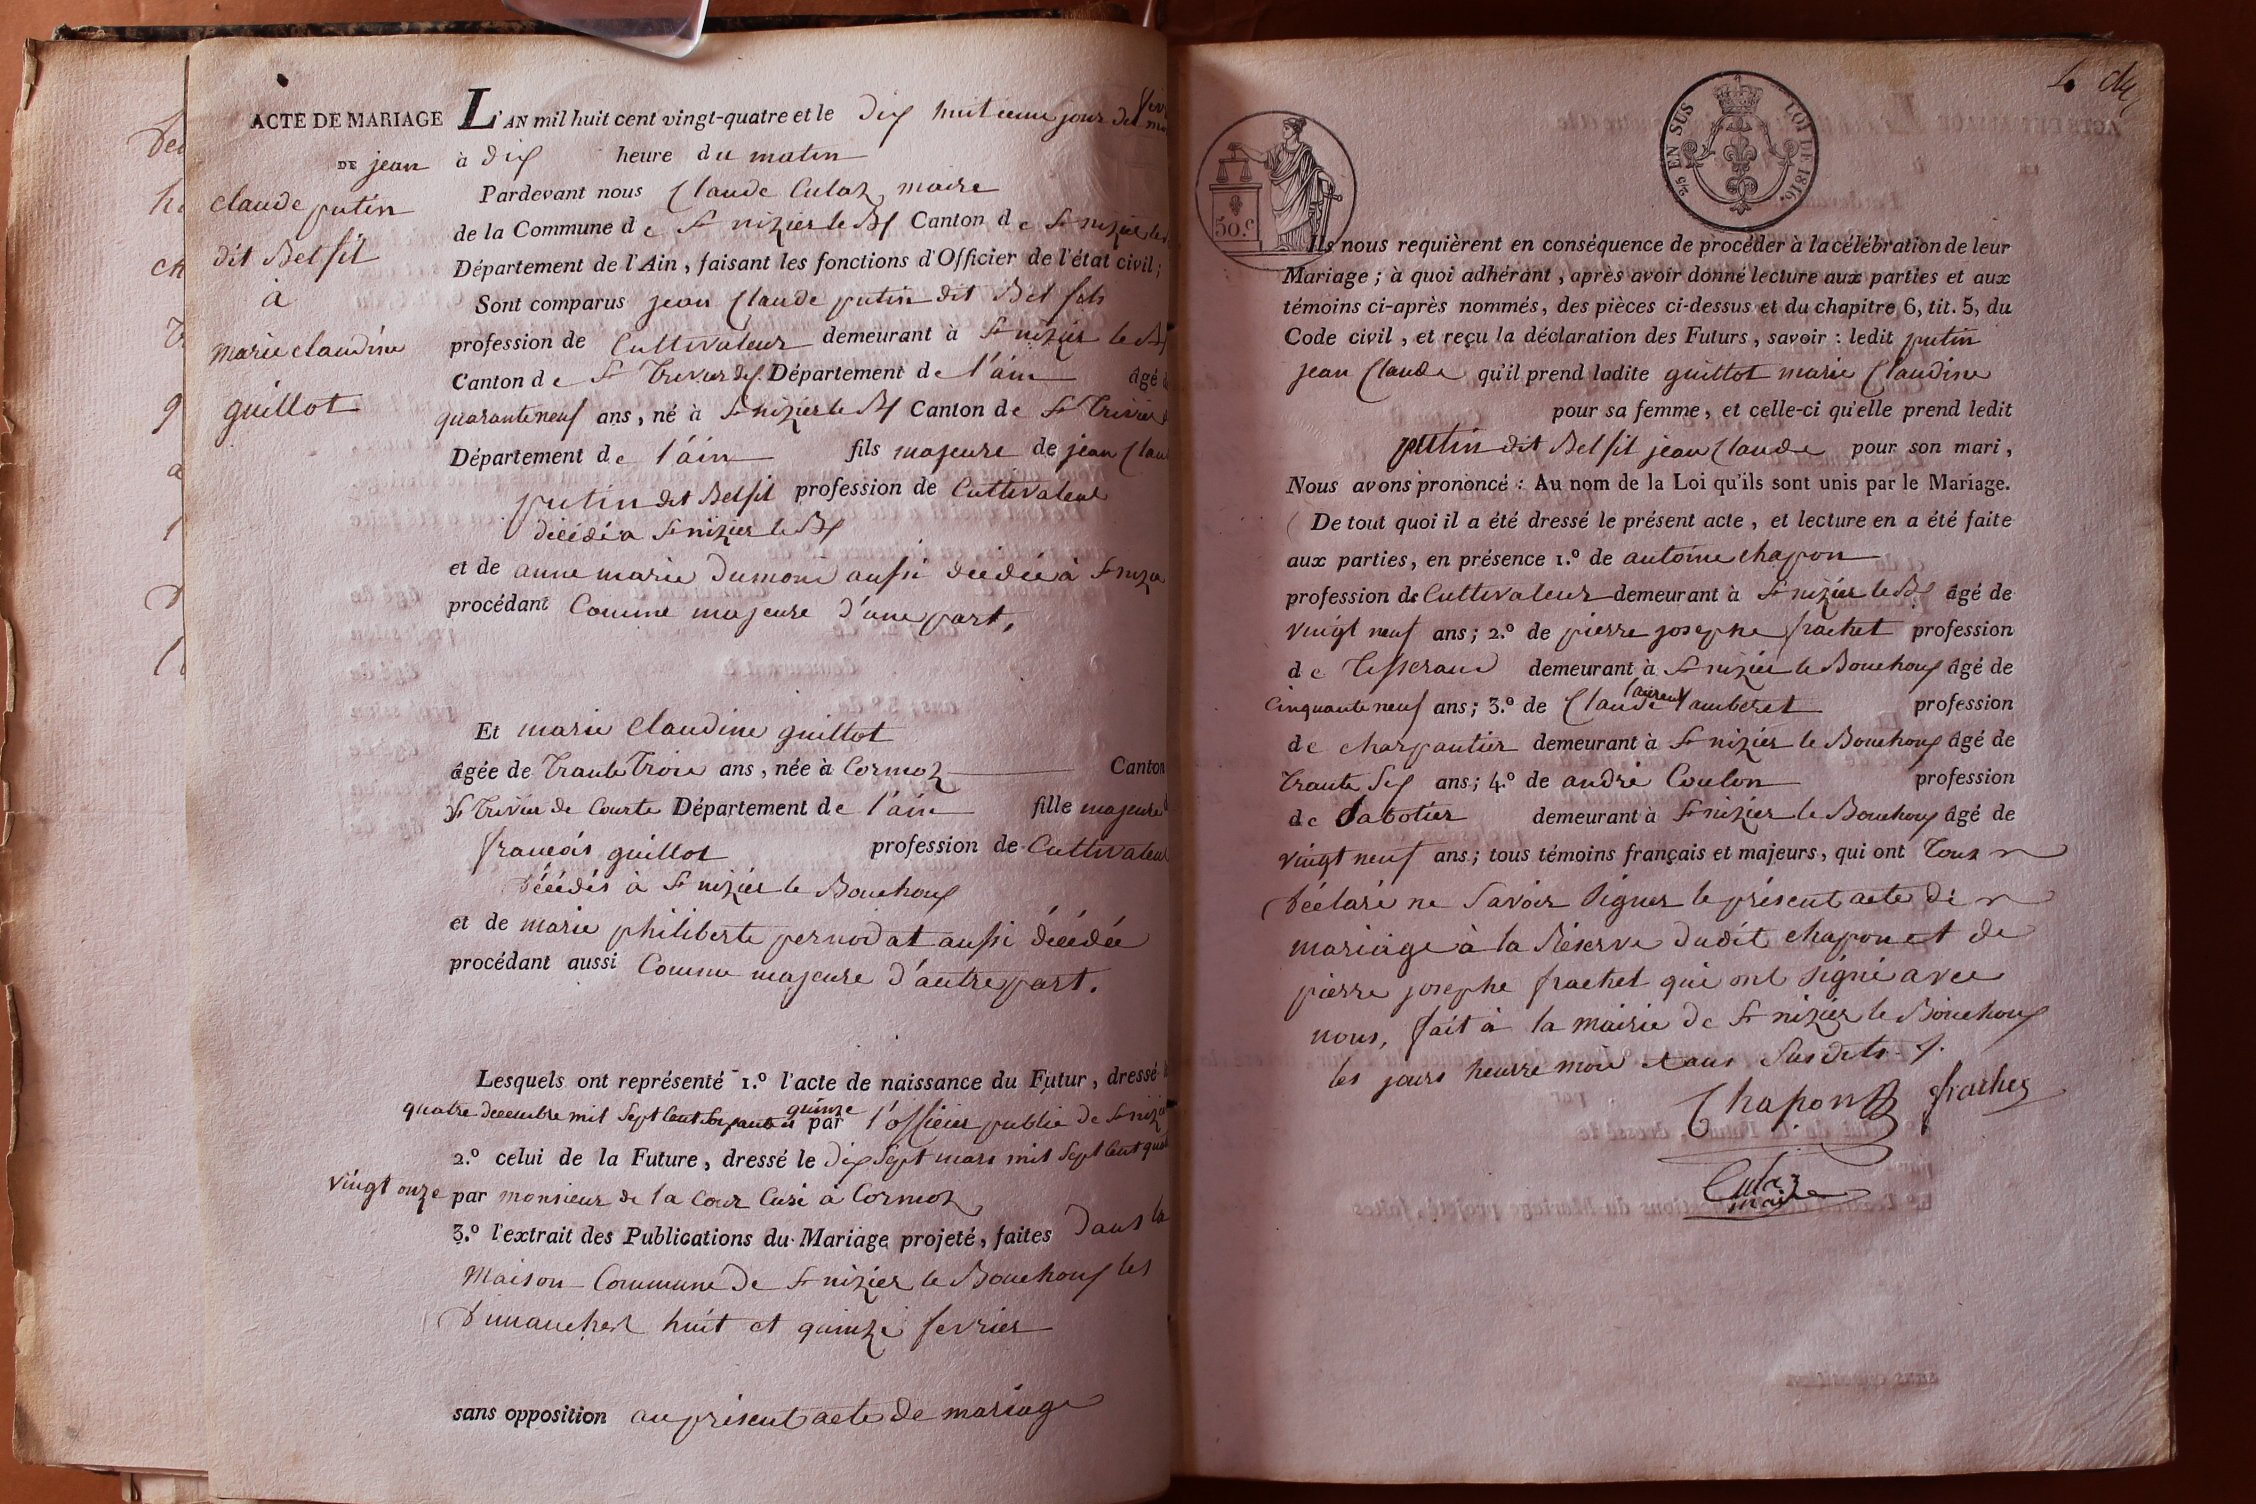 ACTE DE MARIAGE
DE jean
claude putin
dit Belfil
à
marie claudine
guillot
L'AN mil huit cent vingt-quatre et le dix huitieme jour du
à dix heure du matin
Pardevant nous Claude Culaz maire
de la Commune de St nizier le Bx Canton de St nizier le
Département de l'Ain, faisant les fonctions d'Officier de l'état civil;
Sont comparus jean Claude putin dit Bel fils
profession de Cultivateur demeurant à St nizier le Bx
Canton de St Trivier Département de l'ain âgé
quarante neuf ans, né à St nizier le Bx Canton de St Trivier
Département de l'ain fils majeure de jean Clau
putin dit Belfil profession de Cultivateur
décédé a St nizier le Bx
et de anne marie Dumont aussi décédée à St nizie
procédant Comme majeure d'une part,
Et marie Claudine guillot
âgée de Trante Trois ans, née à Cormoz Canton
St Trivier de Courte Département de l'ain fille majeure
francois guillot profession de Cultivateur
décédés à St nizier le Bouchoux
et de marie philiberte pernodat aussi décédée
procédant aussi Comme majeure d'autre part.
Lesquels ont représenté 1.º l'acte de naissance du Futur, dressé
quatre decembre mil Sept Cent quinze par l'officier public de St nizie
2.º celui de la Future, dressé le dix Sept mars mil Sept Cent quat
vingt onze par monsieur de la Cour Curé à Cormoz
3.º l'extrait des Publications du Mariage projeté, faites Dans la
Maison Commune de St nizier le Bouchoux les
Dimanches huit et quinze fevrier
sans opposition au présent acte de mariage
50.c
2/5 EN SUS LOI DE 1816.
Ils nous requièrent en conséquence de procéder à la célébration de leur
Mariage; à quoi adhérant, après avoir donné lecture aux parties et aux
témoins ci-après nommés, des pièces ci-dessus et du chapitre 6, tit. 5, du
Code civil, et reçu la déclaration des Futurs, savoir: ledit putin
jean Claude qu'il prend ladite guillot marie Claudine
pour sa femme, et celle-ci qu'elle prend ledit
putin dit Belfil jean Claude pour son mari,
Nous avons prononcé: Au nom de la Loi qu'ils sont unis par le Mariage.
De tout quoi il a été dressé le présent acte, et lecture en a été faite
aux parties, en présence 1.º de antoine chapon
profession de Cultivateur demeurant à St nizier le Bx âgé de
vingt neuf ans; 2.º de pierre josephe frachet profession
de Tisserand demeurant à St nizier le Bouchoux âgé de
Cinquante neuf ans; 3.º de Claude laurent lamberet profession
de charpantier demeurant à St nizier le Bouchoux âgé de
Trante Six ans; 4.º de andré Coulon profession
de Sabotier demeurant à St nizier le Bouchoux âgé de
vingt neuf ans; tous témoins français et majeurs, qui ont Tous
Déclaré ne Savoir Signer le présent acte de
mariage à la Réserve dudit chapon et de
pierre josephe frachet qui ont Signé avec
nous, fait à la mairie de St nizier le Bouchoux
les jours heurre mois et ans Susdits.
Chapon frachez
Culaz
maire